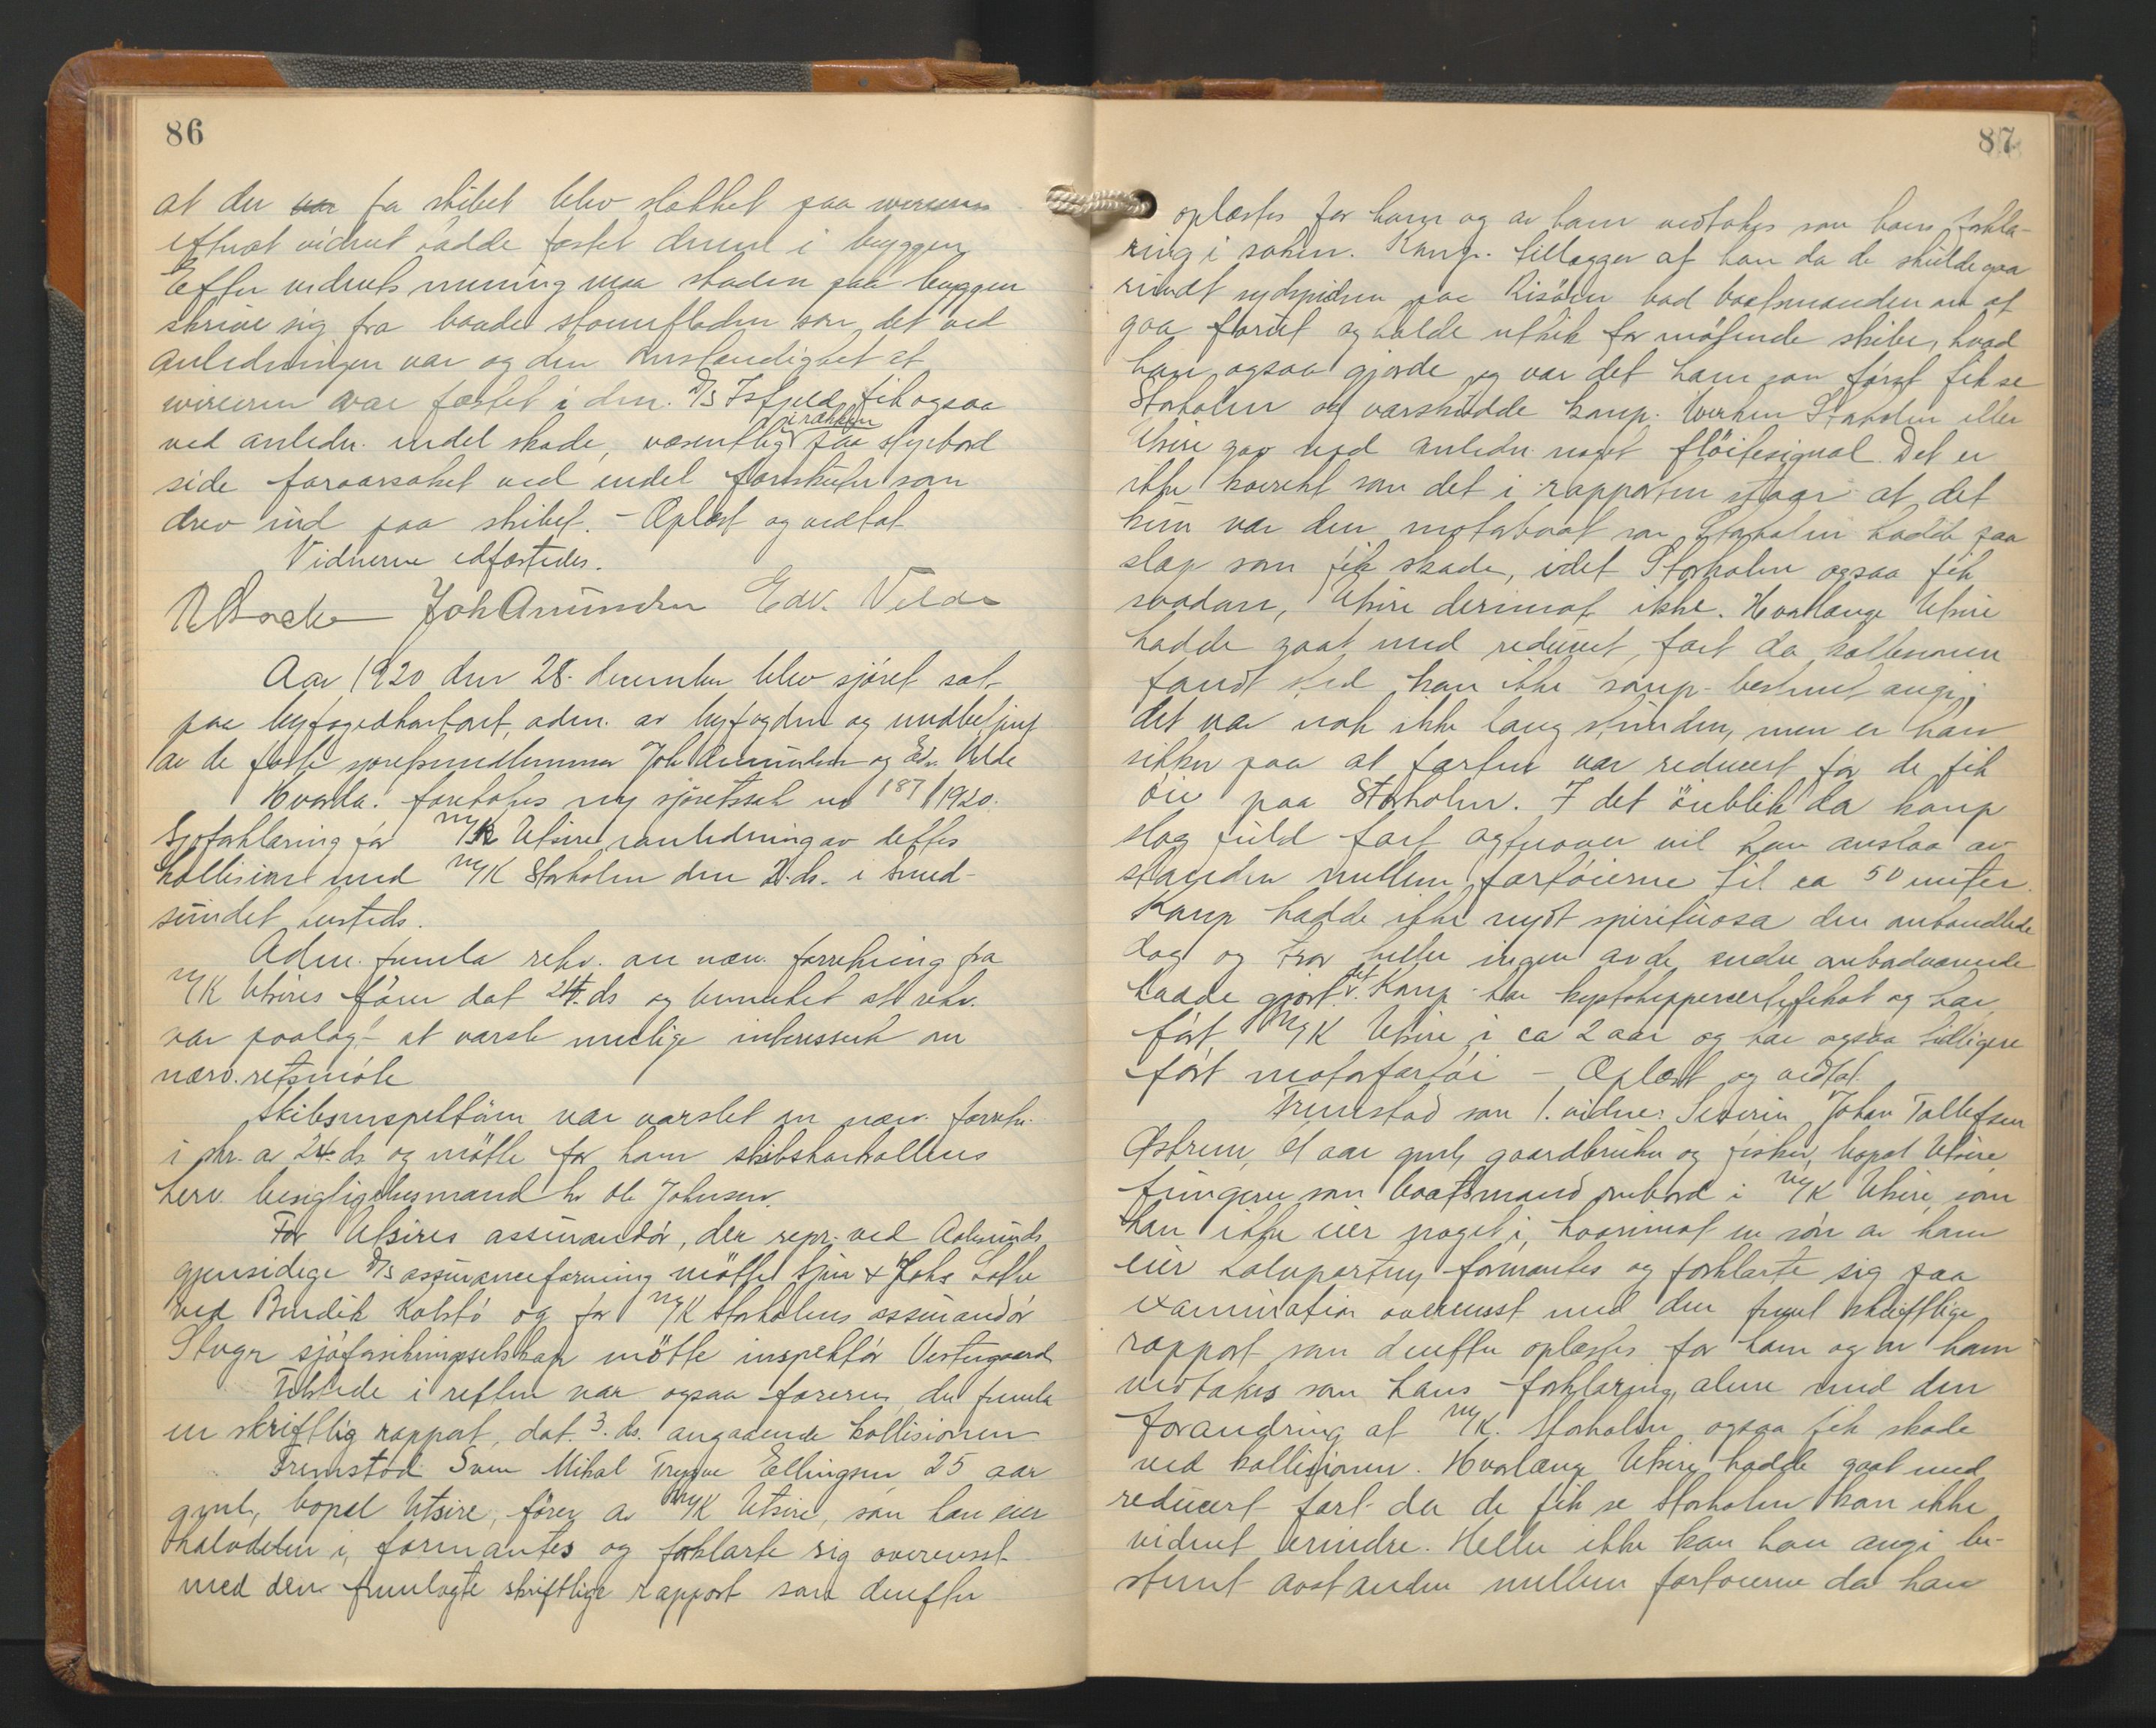 86
at der var fra skibet blev slækket paa wireren
efterat vidnet hadde fæstet denne i bryggen
Efter vidnets mening maa skaden paa bryggen
skrive sig fra baade stormfloden som det ved
anledningen var og den omstændighet at
wireren var fæstet i den. D/S Isfjeld fik ogsaa
i rækken
ved anledn. endel skade, væsentlig paa styrbord
side foraarsaket ved endel fiskeskuter som
drev ind paa skibet. - Oplæst og vedtat
Vidnerne edfæstedes.
Joh Amundsen Edv. Velde
Aar 1920 den 28. december blev sjöret sat
paa byfogedkontoret, adm. av byfogden og medbetjent
av de faste sjöretsmedlemmer Joh Amundsen og Edv. Velde
Hvorda: foretokes ny sjöretssak no 187/1920.
Sjöforklaring for M/K Utsire i anledning av dettes
kollision med M/K Storholm den 2. ds. i Smed-
sundet hersteds.
Adm. fremla rekv. om nærv. forretning fra
M/K Utsires förer dat 24. ds og bemerket at rekv.
var paalagt at varsle mulige interesserte om
nærv. retsmöte
Skibsinspektören var varslet om nærv. forretn.
i skr. av 24. ds. og mötte for ham skibskontrollens
herv. besigtigelsesmand hr Ole Johnsen.
For Utsires assurandör, der repr. ved Aalesunds
gjensidige D/S assuranceforening mötte Stein & Johs Lothe
ved Bendik Kolstö og for M/K Storholms assurandör
Stvgr sjöforsikringsselskap mötte inspektör Vestergaard
Tilstede i retten var ogsaa föreren, der fremla
en skriftlig rapport, dat. 3. ds. angaaende kollisionen
Fremstod Sven Mikal Trygve Ellingsen, 25 aar
gml, bopæl Utsire, förer av M/K Utsire, som han eier
halvdelen i, formantes og forklarte sig overensst
med den fremlagte skriftlige rapport som derefter
87
oplæstes for ham og av ham vedtokes som hans forkla-
ring i saken. Komp. tillægger at han da de skulde gaa
rundt sydspidsen paa Risöen bad baatsmanden om at
gaa forut og holde utkik for mötende skibe, hvad
han ogsaa gjorde og var det ham som först fik se
Storholm og varskudde komp. Hverken Storholm eller
Utsire gav ved anledn. noget flöitesignal. Det er
ikke korrekt som det i rapporten staar at det
kun var den motorbaat som Storholm hadde paa
slæp som fik skade, idet Storholm ogsaa fik
saadan, Utsire derimot ikke. Hvorlænge Utsire
hadde gaat med reducert fart da kollisionen
fandt sted kan ikke komp. bestemt angi,
det var nok ikke lang stunden, men er han
sikker paa at farten var reducert för de fik
öie paa Storholm. I det öieblik da komp
slog fuld fart agterover vil han anslaa av-
standen mellem fartöierne til ca 50 meter.
Komp hadde ikke nydt spirituosa den omhandlede
dag og tror heller ingen av de andre ombordværende
hadde gjort det. Komp har kystskippercertifikat og har
fört M/K Utsire i ca 2 aar og har ogsaa tidligere
fört motorfartöi - Oplæst og vedtat.
Fremstod som 1. vidne: Severin Johan Tollefsen
Østrem, 61 aar gml, gaardbruker og fisker, bopæl Utsire
fungerer som baatsmand ombord i M/K Utsire, som
han ikke eier noget i, hvorimot en sön av ham
eier halvparten, formantes og forklarte sig paa
examination overensst med den fremlagte skriftlige
rapport som derefter oplæstes for ham og av ham
vedtokes som hans forklaring, alene med den
forandring at M/K. Storholm ogsaa fik skade
ved kollisionen. Hvorlænge Utsire hadde gaat med
reducert fart da de fik se Storholm kan ikke
vidnet erindre. Heller ikke kan han angi be-
stemt avstanden mellem fartöierne da han